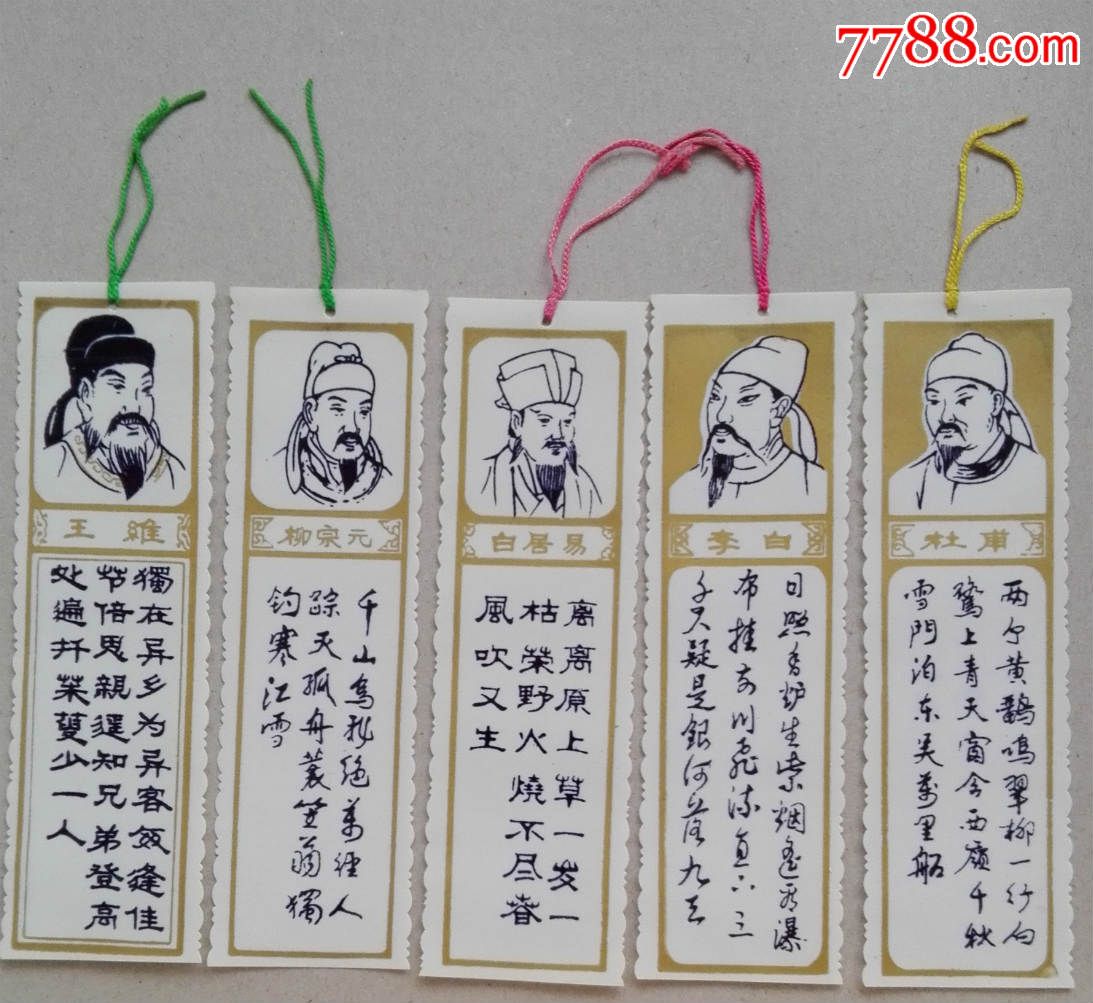 7788.com
王維
獨在异乡为异客每逢佳
节倍思親遥知兄弟登高
处遍扦茱萸少一人
柳宗元
千山鸟飛絕萬徑人
踪灭孤舟蓑笠翁獨
钓寒江雪
白居易
离离原上草一岁一
枯荣野火燒不尽春
風吹又生
李白
日照香炉生紫烟遥看瀑
布挂前川飛流直下三
千尺疑是銀河落九天
杜甫
两个黄鹂鳴翠柳一行白
鷺上青天窗含西嶺千秋
雪門泊东吴萬里船